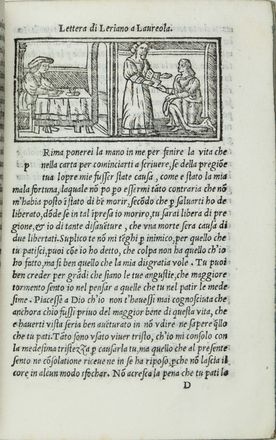 Lettera di Leriano a Laureola.
Rima ponerei la mano in me per finire la vita che
p nella carta per cominciarti a scriuere, se della pregiõe
tua l'opre mie fusser state causa, come e stato la mia
mala fortuna, laquale nõ po essermi tãto contraria che nõ
m'habia posto ĩ stato di bẽ morir, secõdo che p saluarti ho de
liberato, dõde se in tal ĩpresa io moriro, tu sarai libera di pre
gione, & io di tante disauẽture, che vna morte sera causa di
due libertati. Suplico te nõ mi tẽghi p inimico, per quello che
tu patisci, puoi cõe io ho detto, che colpa non ha quello ch'io
ho fatto, ma sì ben quello che la mia disgratia vole. Tu puoi
ben creder per grãdi che siano le tue angustie, che maggiore
tormento sento io nel pensar a quelle che tu nel patir le mede
sime. Piacesse a Dio ch'io non t'hauessi mai cognosciuta che
anchora chio fussi priuo del maggior bene di questa vita, che
e hauerti vista seria ben auẽturato in nõ vdire ne sapere q̃llo
che tu pati. Tãto sono vsato viuer tristo, ch'io mi consolo con
la medesima tristezza p causarla tu, ma quello che al presente
sento ne cõsolatione riceue ne in se ha riposo, pche nõ lascia il
core in alcun modo sfocar. Nõ acresca la pena che tu pati la
D